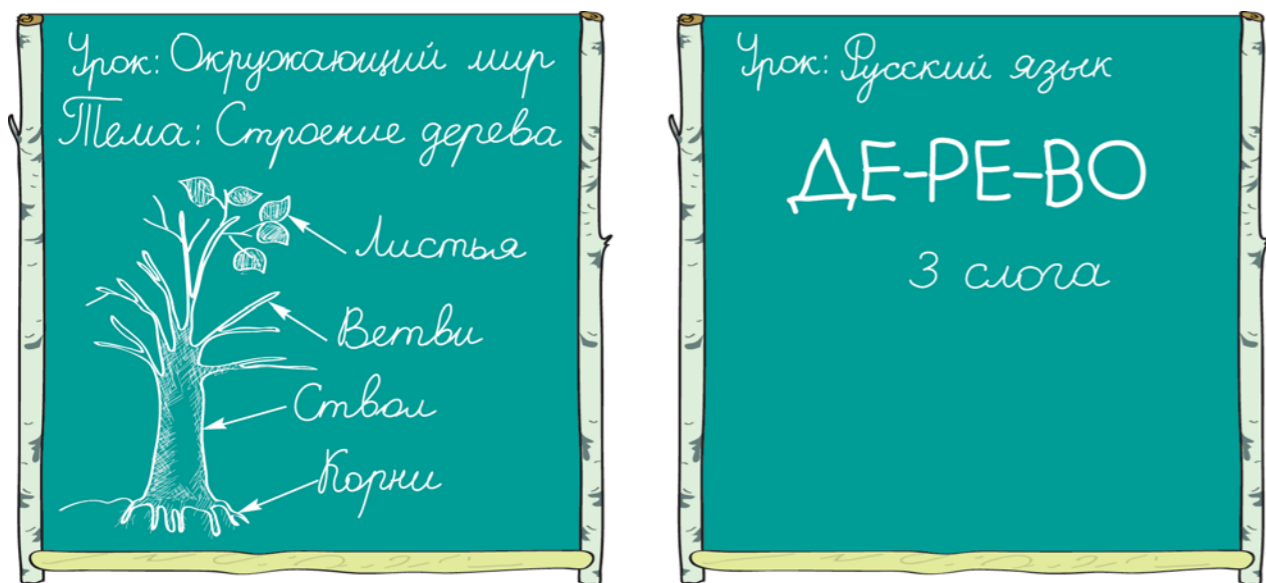 Урок: Окружающий мир
Тема: Строение дерева
Листья
Ветви
Ствол
Корни
Урок: Русский язык
ДЕ-РЕ-ВО
3 слога